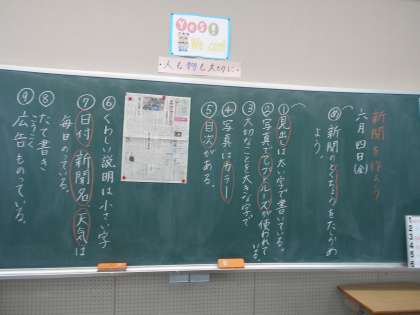 Yes!
We can!
・人も物も大切に・
新聞を作ろう
六月四日(金)
め 新聞のとくちょうをたしかめ
よう。
①見出しは太い字で書いている。
②写真でアップとルーズが使われて
いる。
③大切なことを大きな字で
④写真はカラー
⑤目次がある。
⑥くわしい説明は小さい字
⑦日付 新聞名 天気は
毎日のっている。
⑧たて書き
⑨広告ものっている。
こうこく
1
2
3
4
5
6